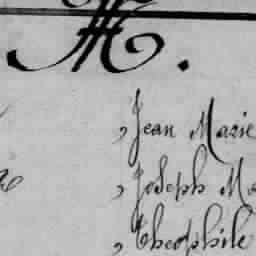 M.
, Jean Marie
, Joseph Ma
, Theophile